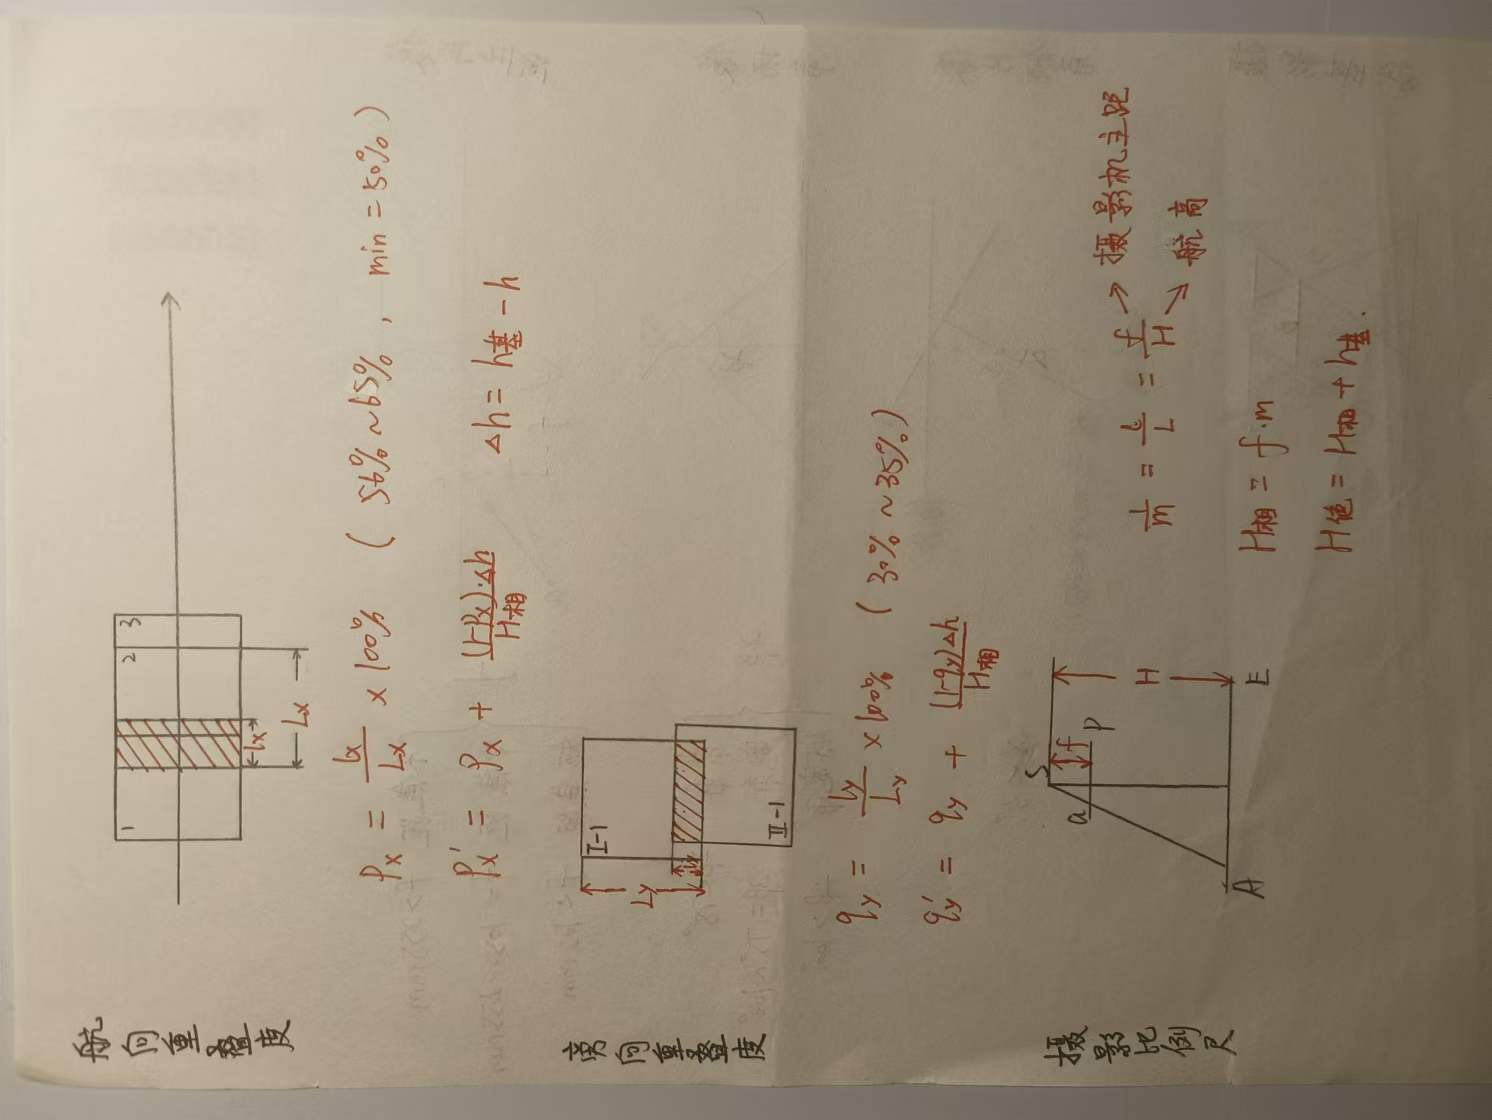 航向重叠度
1 2 3
lx
Lx
Px = lx/Lx × 100% ( 56% ~ 65% , min = 50% )
Px' = Px + (1-Px)·Δh/H相 Δh = h基 - h
旁向重叠度
I-1
Ly
ly
II-1
qy = ly/Ly × 100% ( 30% ~ 35% )
qy' = qy + (1-qy)Δh/H相
摄影比例尺
S
f
a P
H
A E
1/m = l/L = f/H → 摄影机主距
→ 航高
H相 = f·m
H绝 = H相 + h基.